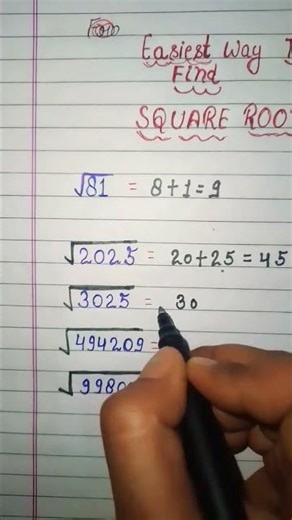 Easiest Way
Find
SQUARE ROO
√81 = 8+1=9
√2025 = 20+25 = 45
√3025 = 30
√494209 =
√9980